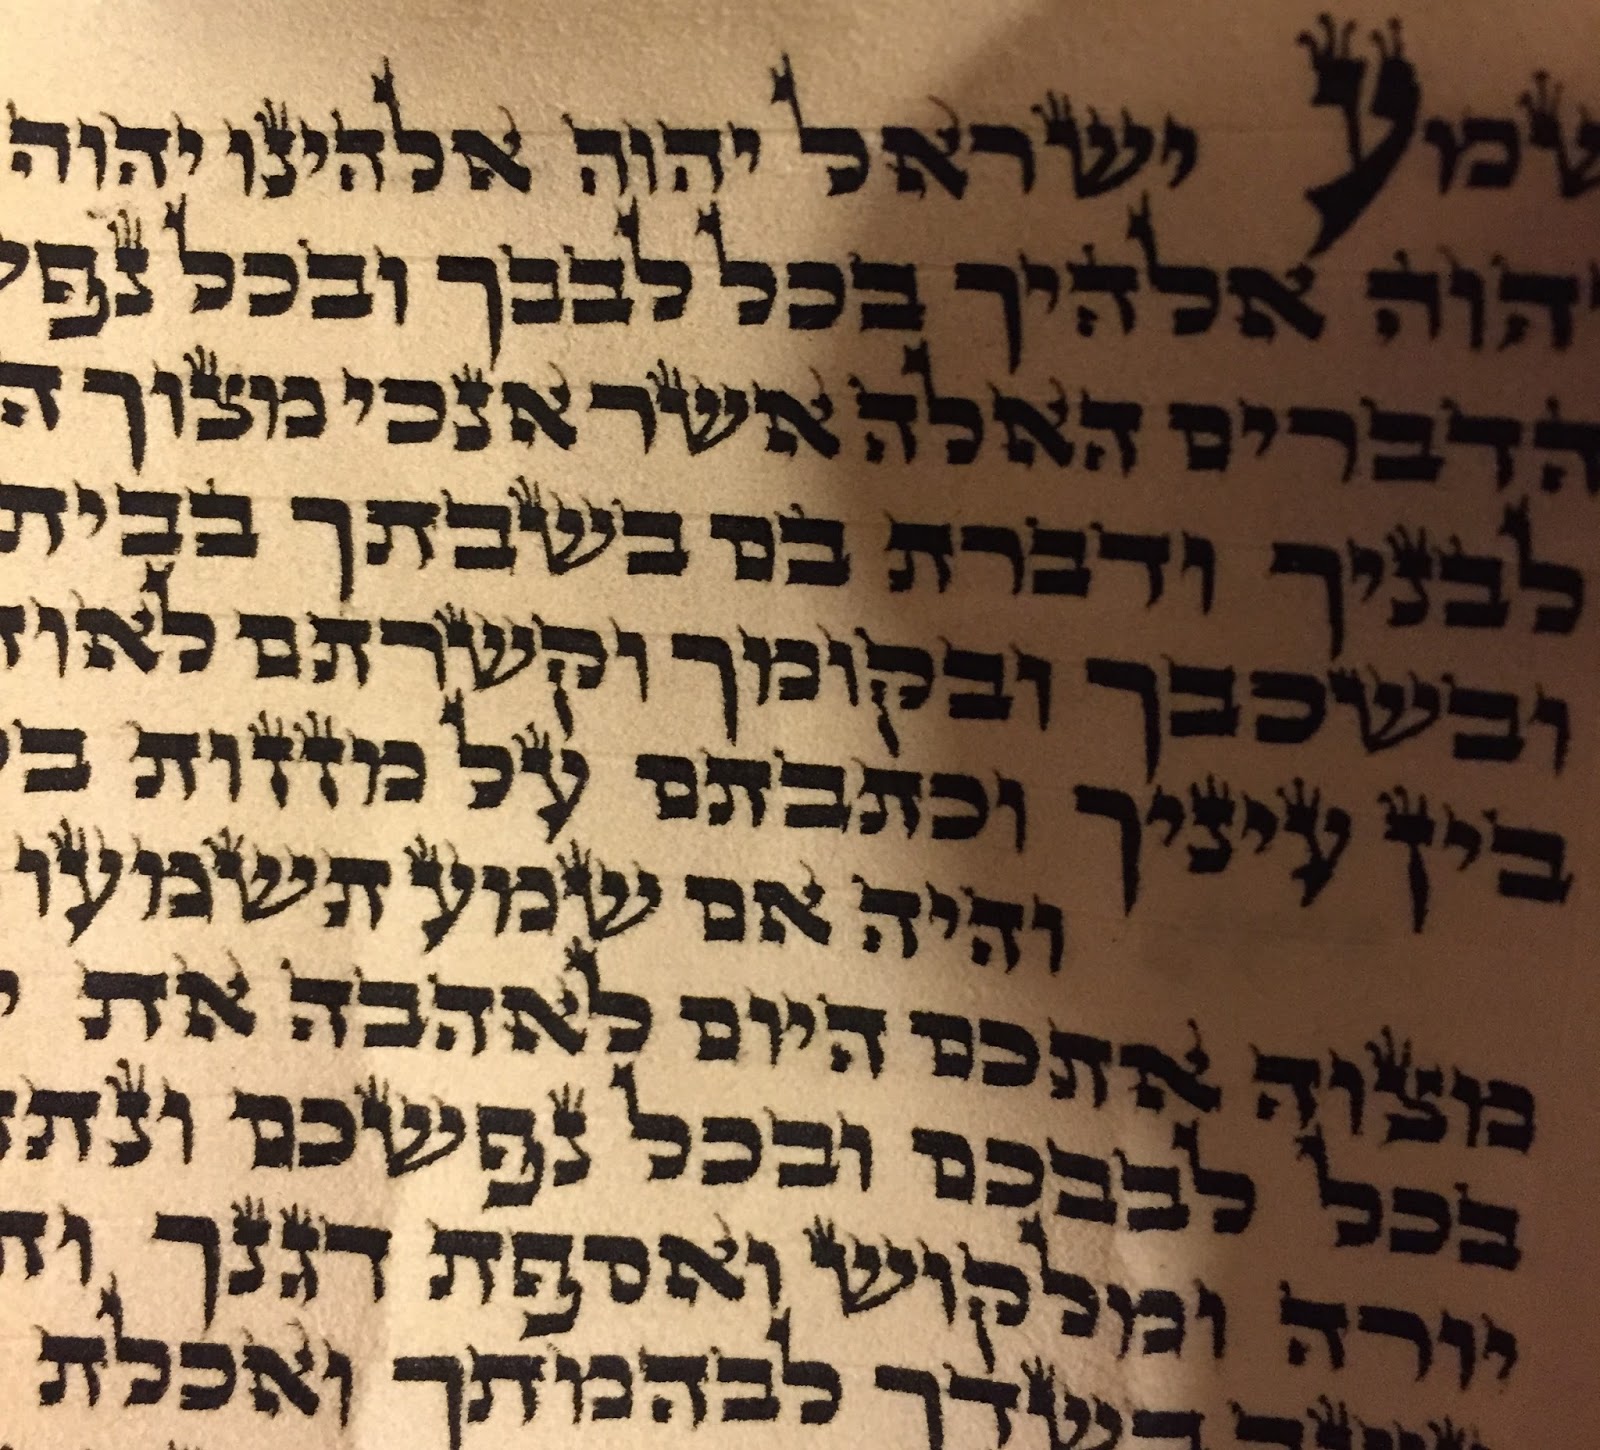 שמע ישראל יהוה אלהינו יהוה
יהוה אלהיך בכל לבבך ובכל
הדברים האלה אשר אנכי מצוך
לבניך ודברת בם בשבתך בבית
ובשכבך ובקומך וקשרתם
בין עיניך וכתבתם על מזזות
והיה אם שמע תשמעו
מצוה אתכם היום לאהבה את
בכל לבבכם ובכל נפשכם
יורה ומלקוש ואספת דגנך
בשדך לבהמתך ואכלת